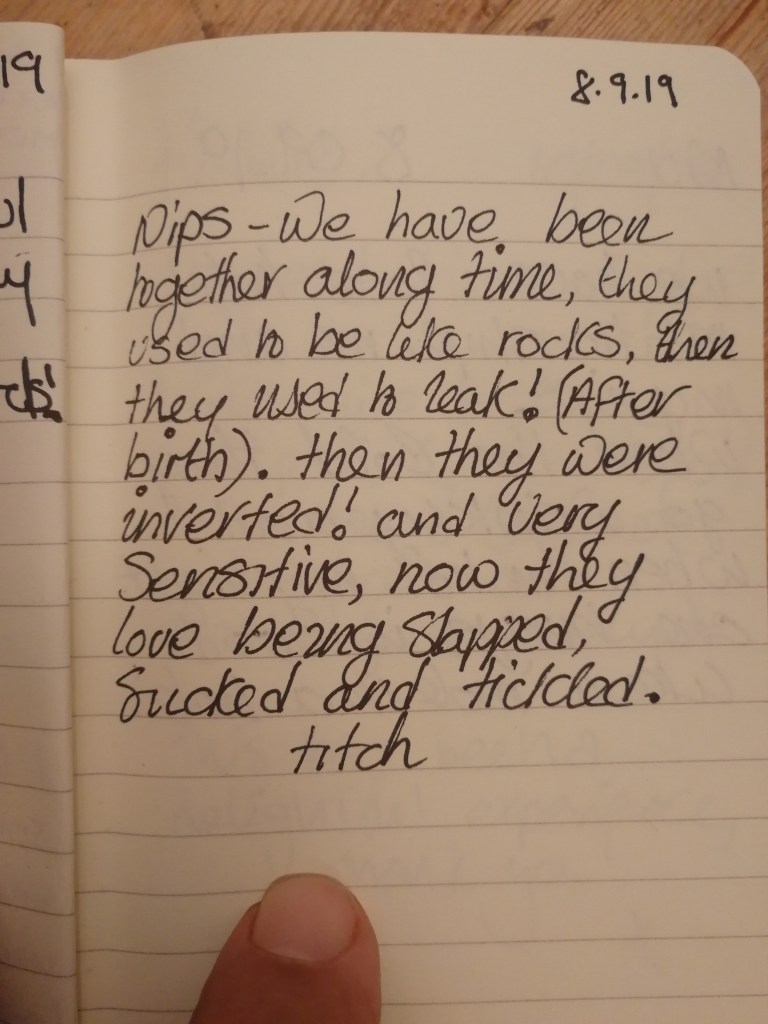 19
8.9.19
Nips - We have been
together along time, they
used to be like rocks, then
they used to leak! (After
birth). then they were
inverted! and very
Sensitive, now they
love being Slapped,
Sucked and tickled.
titch